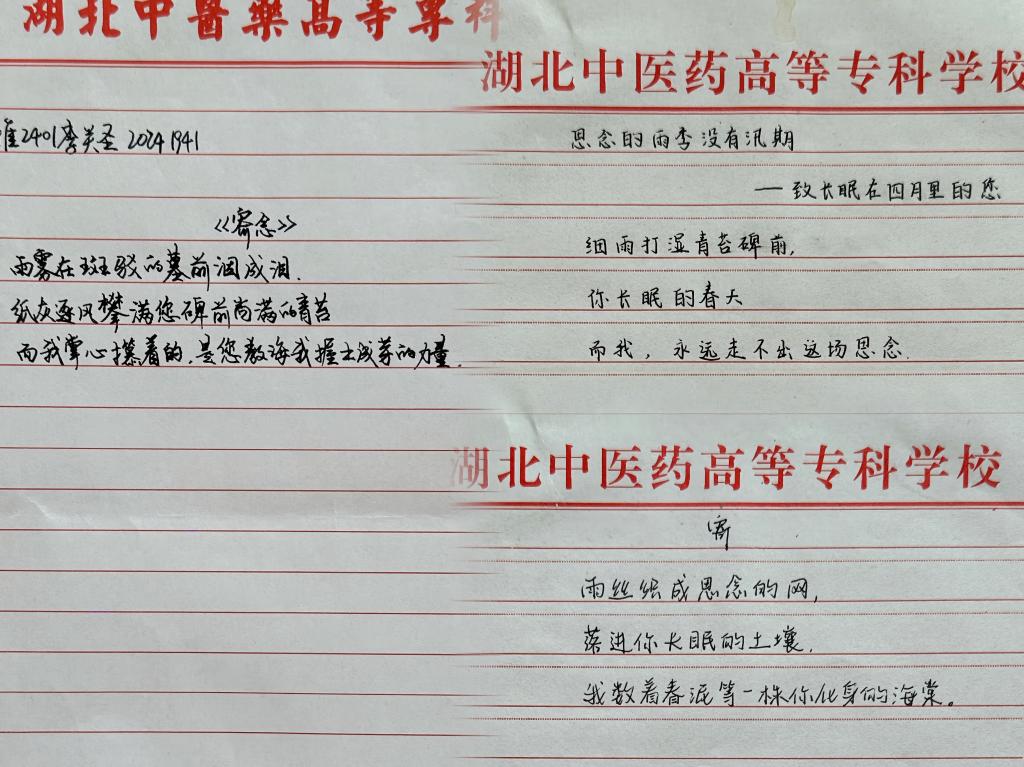 湖北中醫藥高等專科
2401李关圣 2024 1941
《寄念》
雨雾在斑驳的墓前洇成泪.
纸灰逐风攀满您碑前尚满的青苔
而我掌心攥着的,是您教诲我握土成芽的力量.
湖北中医药高等专科学校
思念的雨季没有汛期
——致长眠在四月里的您
细雨打湿青苔碑前,
你长眠的春天
而我,永远走不出这场思念.
湖北中医药高等专科学校
寄
雨丝织成思念的网,
落进你长眠的土壤.
我数着春泥等一株你化身的海棠。